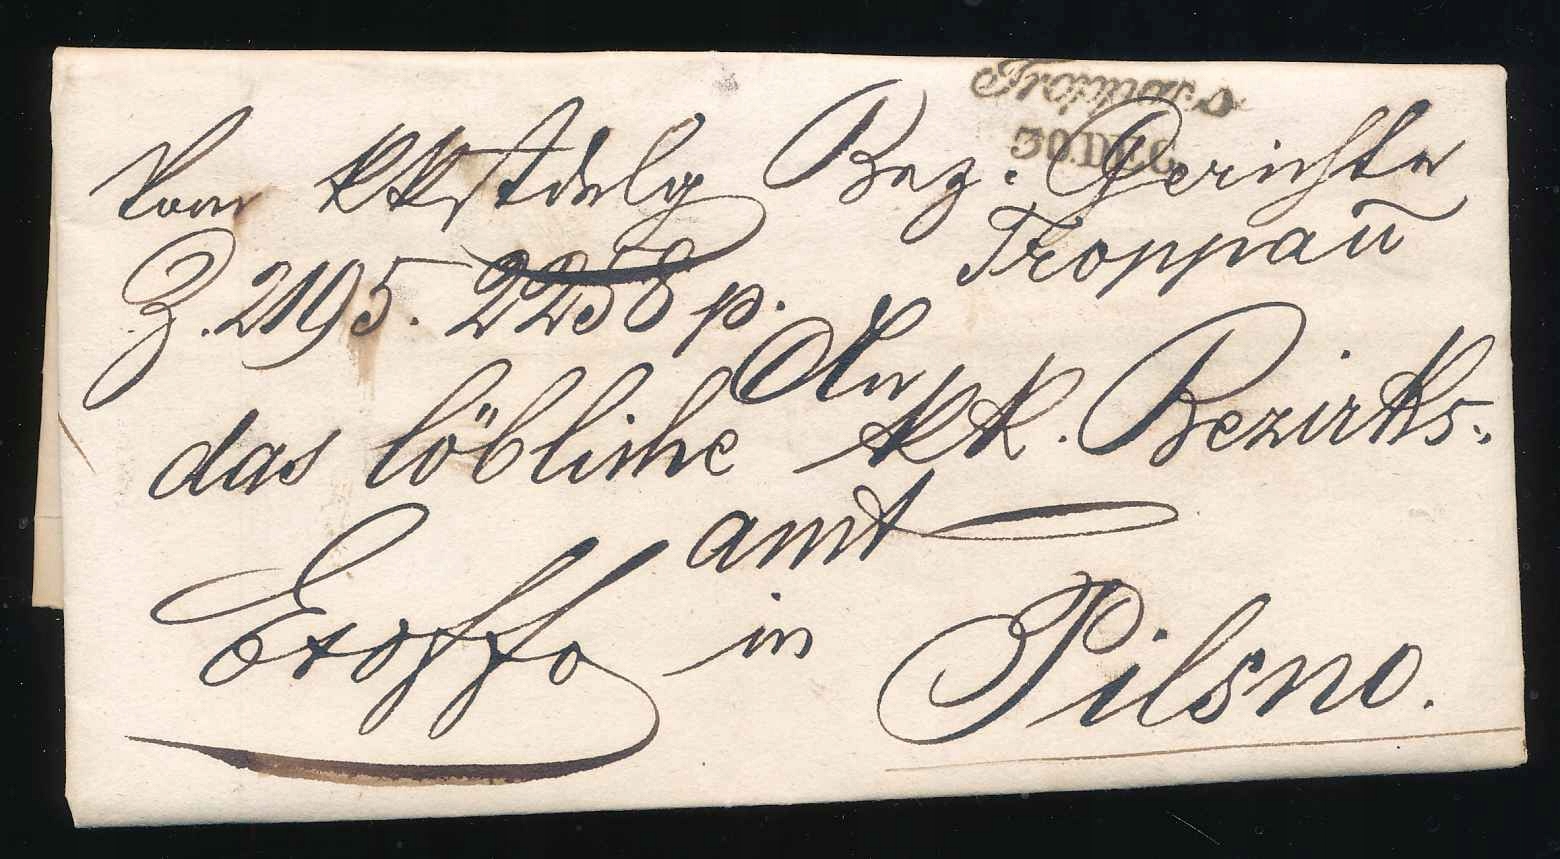 Troppau
30.DEC
Vom kk städ delg Bez. Gerichte
Troppau
Z. 2195. 2258 p.
An
das löbliche kk. Bezirks-
amt
Exoffo in Pilsno.